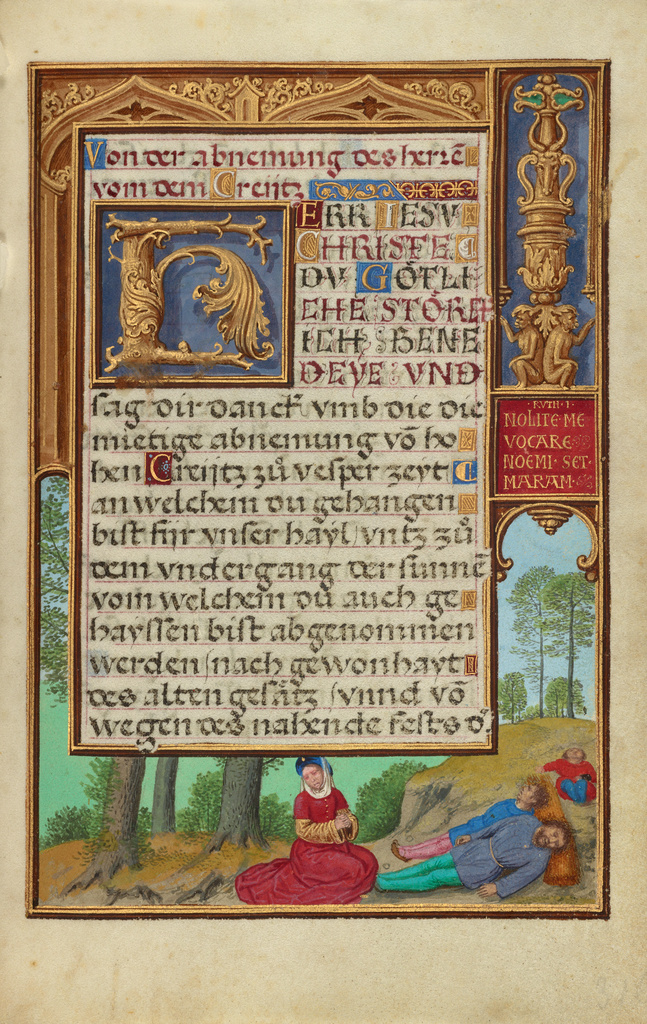 Von der abnemung des herrē
vom dem Creijtz
HERR IESV
CHRISTE
DV GÖTLI
CHE STÖRCK
ICH BENE
DEYE VND
sag dir danck vmb die die
mietige abnemung vō ho
hen Creijtz zů vesper zeyt
an welchem du gehangen
bist fijr vnser hayl vntz zů
dem vndergang der sunnē
vom welchem du auch ge
hayssen bist abgenommen
werden/nach gewonhayt
des alten gesätz /vnnd vō
wegen des nahende fests d
RVTH·I·
NOLITE·ME
VOCARE
NOEMI·SET·
MARAM·